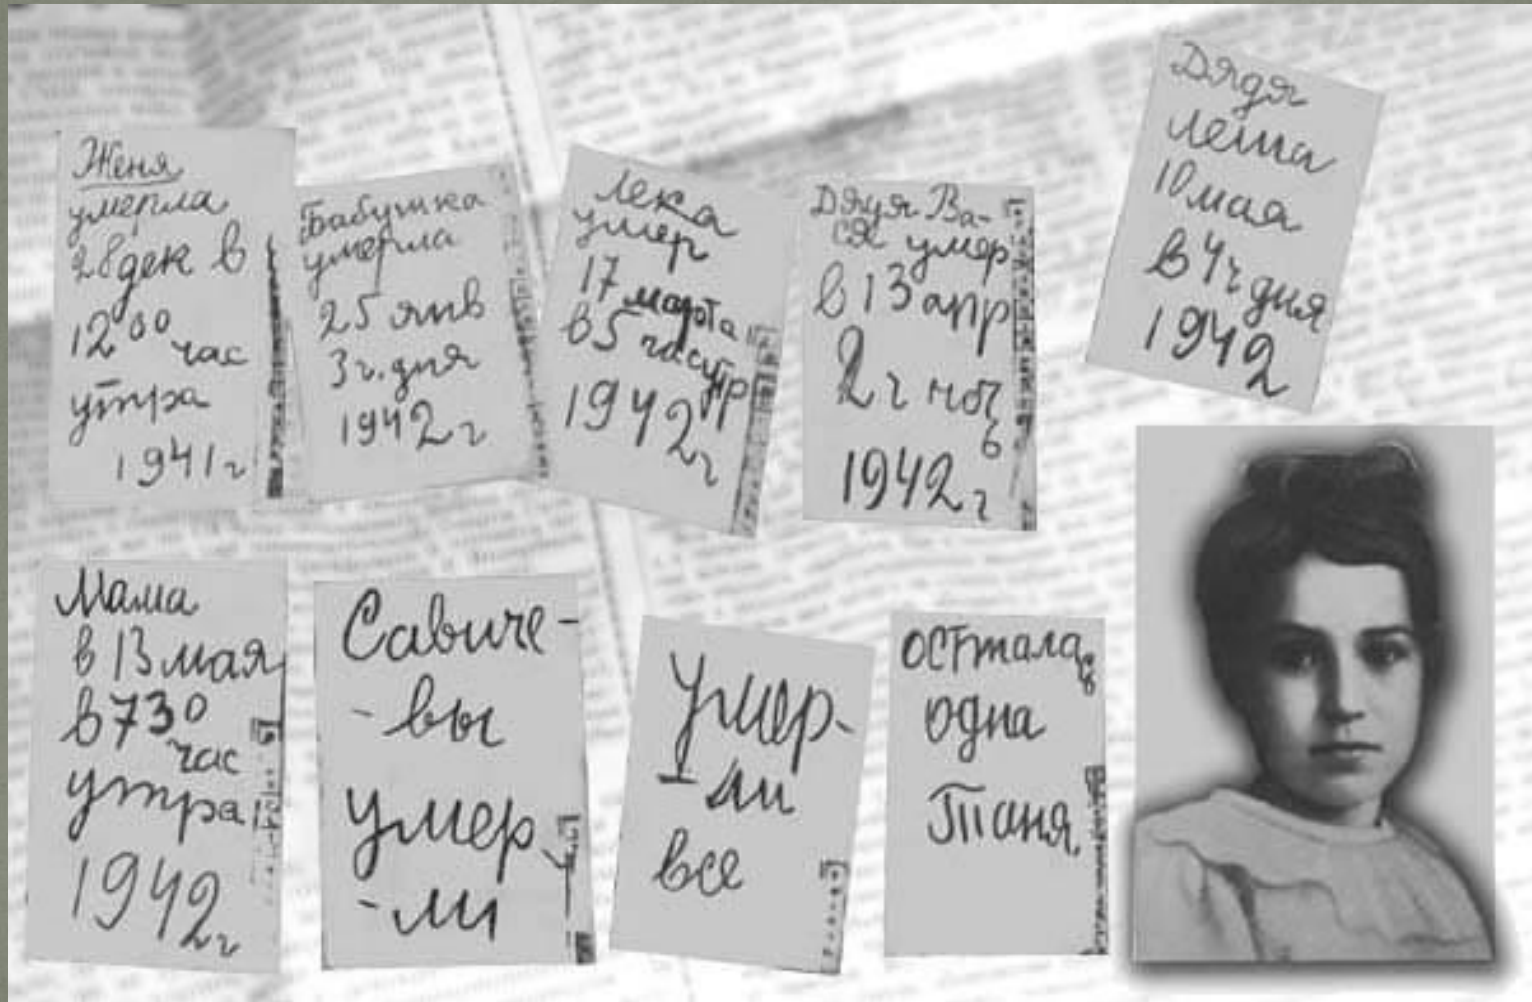 Женя
умерла
28 дек в
12⁰⁰ час
утра
1941 г
Бабушка
умерла
25 янв
3 ч. дня
1942 г
Лека
умер
17 марта
в 5 час утр
1942 г
Дядя Ва-
ся умер
в 13 апр
2 ч ноч
ь
1942 г
Дядя
Леша
10 мая
в 4 ч дня
1942
Мама
в 13 мая
в 7 30
час
утра
1942 г
Савиче-
-вы
умер
-ли
Умер-
-ли
все
Осталась
одна
Таня.